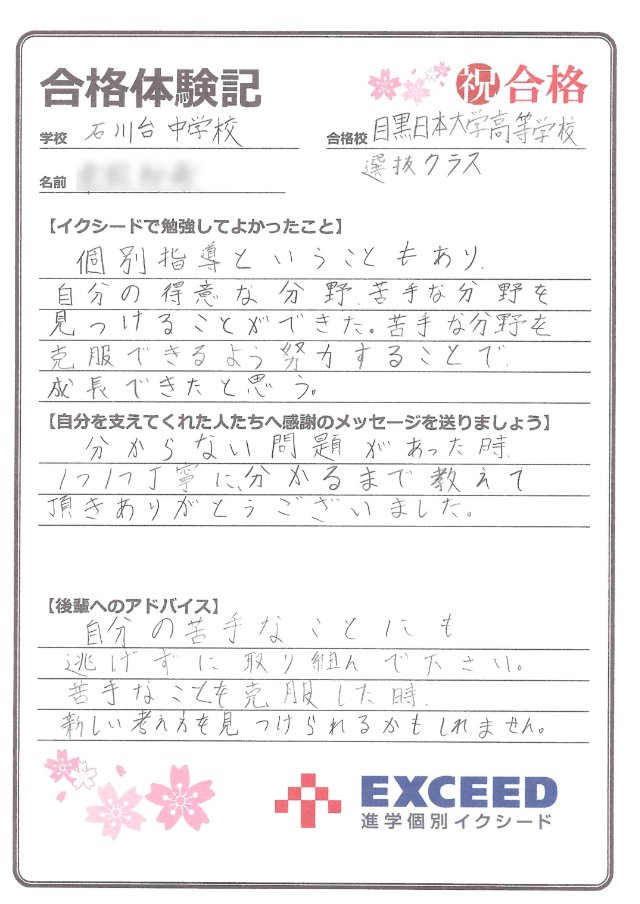 合格体験記
祝 合格
学校 石川台中学校
合格校 目黒日本大学高等学校
選抜クラス
名前
【イクシードで勉強してよかったこと】
個別指導ということもあり、
自分の得意な分野、苦手な分野を
見つけることができた。苦手な分野を
克服できるよう努力することで、
成長できたと思う。
【自分を支えてくれた人たちへ感謝のメッセージを送りましょう】
分からない問題があった時、
1つ1つ丁寧に、分かるまで教えて
頂きありがとうございました。
【後輩へのアドバイス】
自分の苦手なことにも
逃げずに取り組んで下さい。
苦手なことを克服した時、
新しい考え方を見つけられるかもしれません。
EXCEED
進学個別イクシード